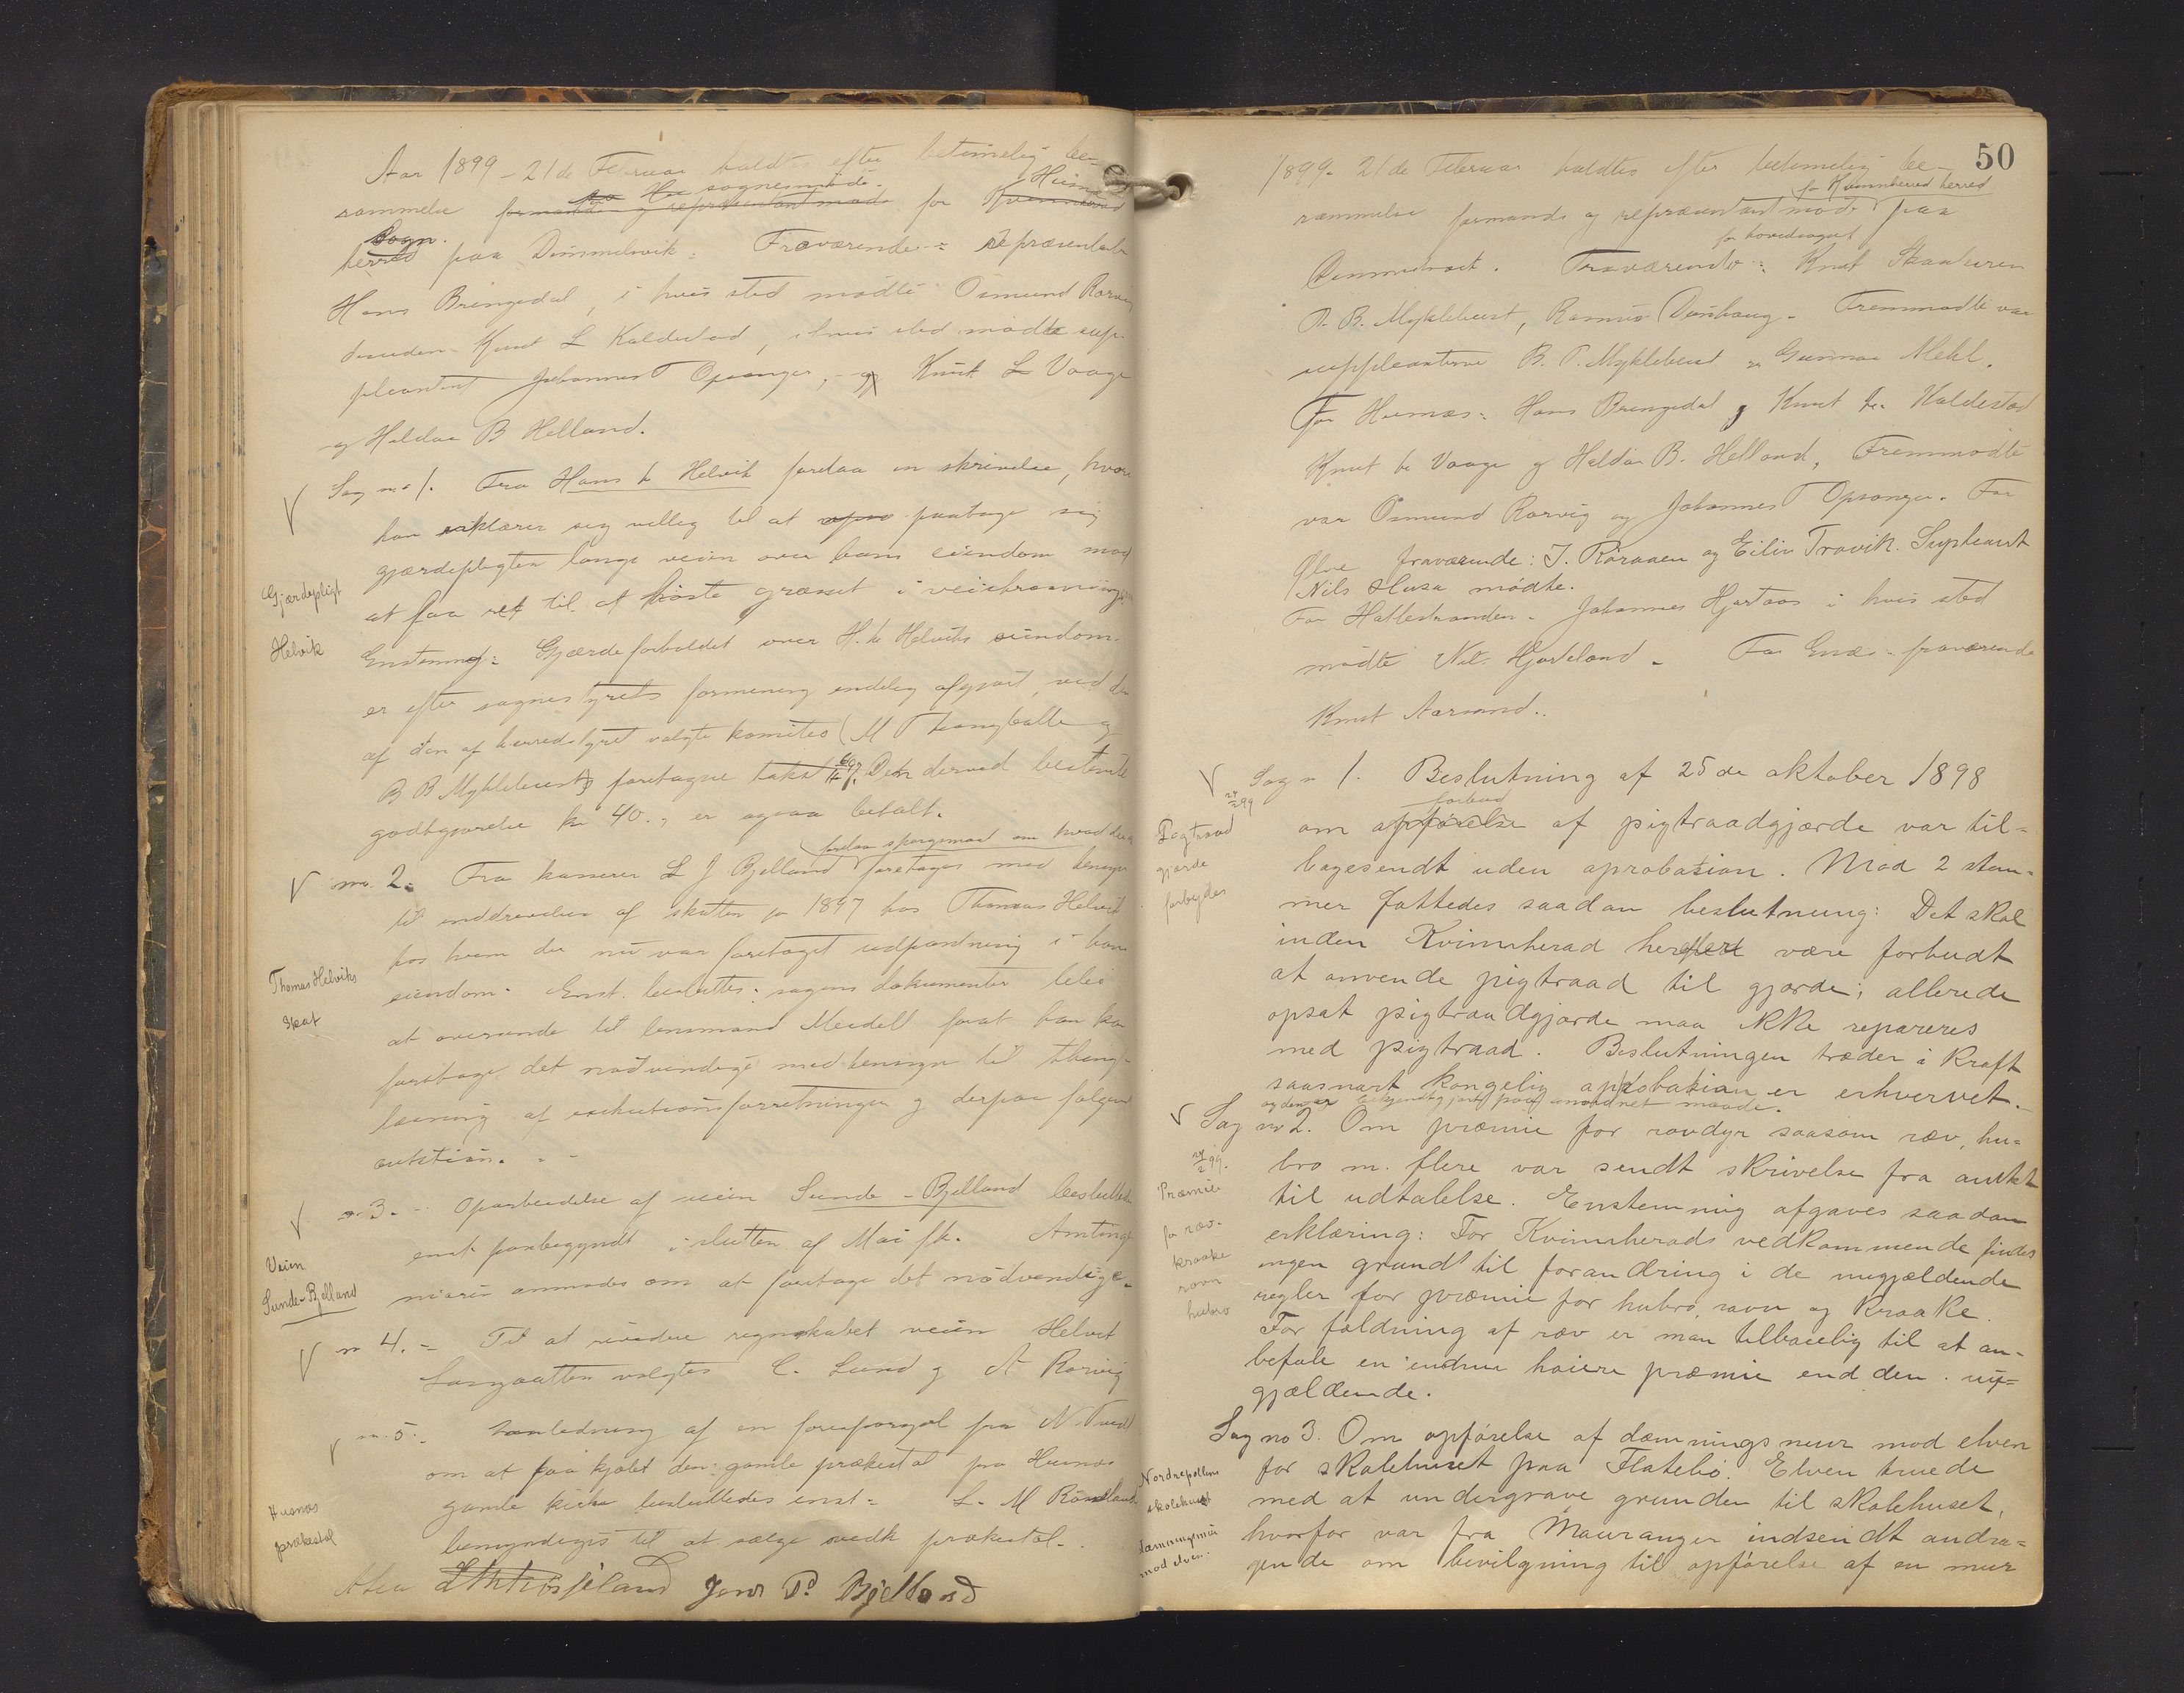 Aar 1899 - 21de Februar holdtes efter betimelig be-
rammelse formands og repræsentantmøde sognemøde for Kvinnherred Husnæs
herred Sogn. paa Dimmelsvik. Fraværende: repræsentant
Hans Bringedal, i hvis sted mødte Osmund Rørvig
desuden Knut L Kaldestad, i hvis sted mødte sup-
pleanten Johannes T Opsanger, og Knut L Vaage
og Haldor B Helland.
Sag no 1. Fra Hans L Helvik forelaa en skrivelse, hvori
han erklærer seg villig til at paatage sig
gjærdepligten langs veien over hans eiendom mod
at faa ret til at høste græsset i veiskraaningen
Gjærdepligt
Helvik
Enstemmig: Gjærdeforholdet over H. L Helviks eiendom
er efter sognestyrets formening endelig afgjort ved den
af den af herredstyret valgte komite (M T Langballe og
B B Myklebust) foretagne takst. Den derved bestemte
godtgjørelse kr 40., er ogsaa betalt.
no. 2. Fra kasserer L J Bjelland forelaa spørgsmaal om hvad der
foretages med hensyn
til inddrivelsen af skatten for 1897 hos Thomas Helvik
hos hvem der nu var foretaget udpantning i hans
eiendom. Enst. besluttes: sagens dokumenter blir
Thomas Helviks
skat
at oversende til lensmand Meidell forat han kan
foretage det nødvendige med hensyn til thing-
læsning af exekutionsforretningen og derpaa følgende
auktion.
no 3. Oparbeidelse af veien Sunde - Bjelland besluttedes
enst. paabegyndt i slutten af Mai f.k. Amtinge-
niøren anmodes om at foretage det nødvendige.
Veien
Sunde-Bjelland
no 4. Til at revidere regnskabet veien Helvik
valgtes C. Lund og A Rørvig
no. 5. I anledning af en forespørgsel fra N Tvedt
om at faa kjøbt den gamle prækestol fra Husnæs
gamle kirke besluttedes enst: L. M
bemyndiges til at sælge vedk prækestol.
Husnæs
prækestol
Jens P. Bjelland
50
1899. 21de Februar holdtes efter betimelig be-
rammelse formands og repræsentantmøde for Kvinnherred herred paa
Dimmelsvik. Fraværende for hovedsognet: Knut Skaaluren
P. B. Myklebust, Rasmus Dønhaug. Fremmødte var
suppleanterne B. P. Myklebust og Gunnar Mehl.
For Husnæs: Hans Bringedal og Knut L. Kaldestad
Knut L. Vaage og Haldor B. Helland, Fremmødte
var Osmund Rørvig og Johannes T Opsanger. For
Ølve fraværende: J. Røraaen og Eiliv Travik. Supleant
Nils Husa mødte.
For Hatlestranden. Johannes Hjartaas i hvis sted
mødte Nils Hjortland. For Enæs fraværende
Knut Aarsand.
Sag no 1. Beslutning af 25de oktober 1898
om forbud opførelse af pigtraadgjærde var til-
bagesendt uden aprobation. Mod 2 stem-
mer fattedes saadan beslutning: Det skal
inden Kvinnherad herred være forbudt
at anvende pigtraad til gjærde; allerede
opsat pigtraadgjærde maa ikke repareres
med pigtraad. Beslutningen træder i kraft
saasnart kongelig aprobation er erhvervet.
og den er bekjendtgjort paa anordnet maade.
24/2 99
Pigtraad
gjærde
forbydes
Sag no 2. Om præmie for rovdyr saasom ræv, hu-
bro m. flere var sendt skrivelse fra amtet
til udtalelse. Enstemmig afgaves saadan
erklæring: For Kvinnherads vedkommende findes
ingen grund til forandring i de nugjældende
regler for præmie for hubro, ravn og kraake.
For fældning af ræv er man tilbøielig til at an-
befale en endnu høiere præmie end den nu-
gjældende.
24/2 99.
Præmie
for ræv
kraake
ravn
hubro
Sag no 3. Om opførelse af dæmningsmur mod elven
for skolehuset paa Flatebø. Elven truede
med at undergrave grunden til skolehuset,
hvorfor var fra Mauranger indsendt andra-
gende om bevilgning til opførelse af en mur
Nordrepollens
skolehus
dæmningsmur
mod elven.